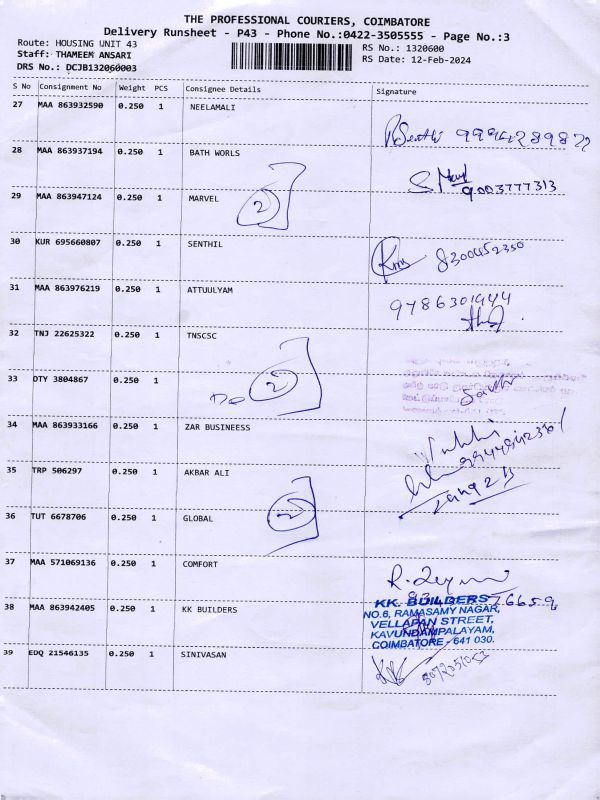 THE PROFESSIONAL COURIERS, COIMBATORE
Delivery Runsheet - P43 - Phone No.:0422-3505555 - Page No.:3
Route: HOUSING UNIT 43
RS No.: 1320600
Staff: THAMEEM ANSARI
RS Date: 12-Feb-2024
DRS No.: DCJB132060003
S No Consignment No Weight PCS Consignee Details Signature
27 MAA 863932590 0.250 1 NEELAMALI
28 MAA 863937194 0.250 1 BATH WORLS
9003777313
29 MAA 863947124 0.250 1 MARVEL
2
30 KUR 695660807 0.250 1 SENTHIL
8300452350
31 MAA 863976219 0.250 1 ATTUULYAM
9786301444
32 TNJ 22625322 0.250 1 TNSCSC
33 DTY 3804867 0.250 1
2
34 MAA 863933166 0.250 1 ZAR BUSINEESS
35 TRP 506297 0.250 1 AKBAR ALI
36 TUT 6678706 0.250 1 GLOBAL
2
37 MAA 571069136 0.250 1 COMFORT
38 MAA 863942405 0.250 1 KK BUILDERS
KK. BUILDERS
NO.6, RAMASAMY NAGAR,
VELLAPAN STREET,
KAVUNDAMPALAYAM,
COIMBATORE - 641 030.
39 EDQ 21546135 0.250 1 SINIVASAN